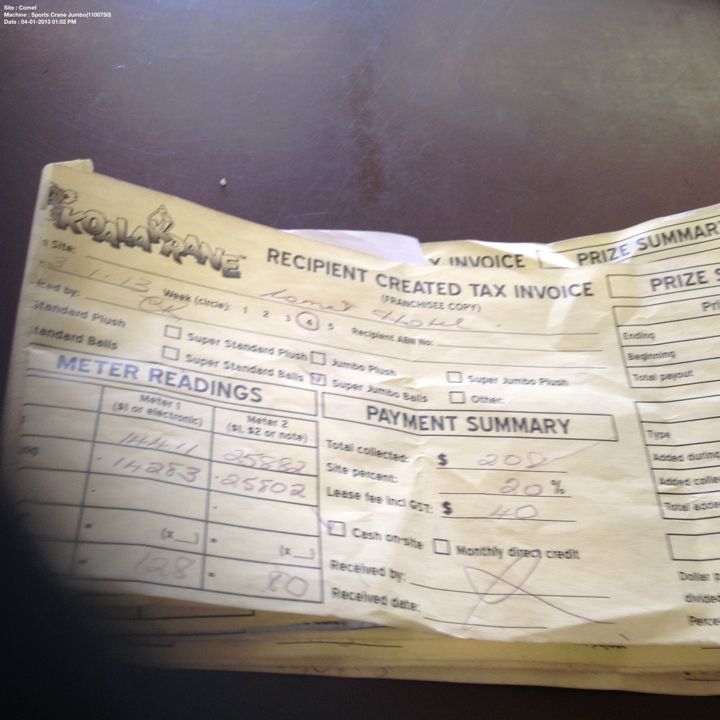 Site : Comet
Machine : Sports Crane Jumbo(1100750)
Date : 04-01-2013 01:52 PM
KOALA KRANE
RECIPIENT CREATED TAX INVOICE
(FRANCHISEE COPY)
X INVOICE
PRIZE SUMMAR
PRIZE S
Site:
Comet Hotel
3.1.13 Week (circle): 1 2 3 4 5 Recipient ABN No:
ced by:
tandard Plush
Super Standard Plush
Jumbo Plush
Super Jumbo Plush
tandard Balls
Super Standard Balls
Super Jumbo Balls
Other:
METER READINGS
Meter 1
($1 or electronic)
Meter 2
($1, $2 or note)
14411 25882
14283 25802
=
(x__) (x__)
= 128 = 80
PAYMENT SUMMARY
Total collected: $ 208
Site percent: 20 %
Lease fee incl GST: $ 40
Cash on-site
Monthly direct credit
Received by:
Received date:
Pri
Ending
Beginning
Total payout
Type
Added during
Added colle
Total adde
Dollar p
divided
Perce